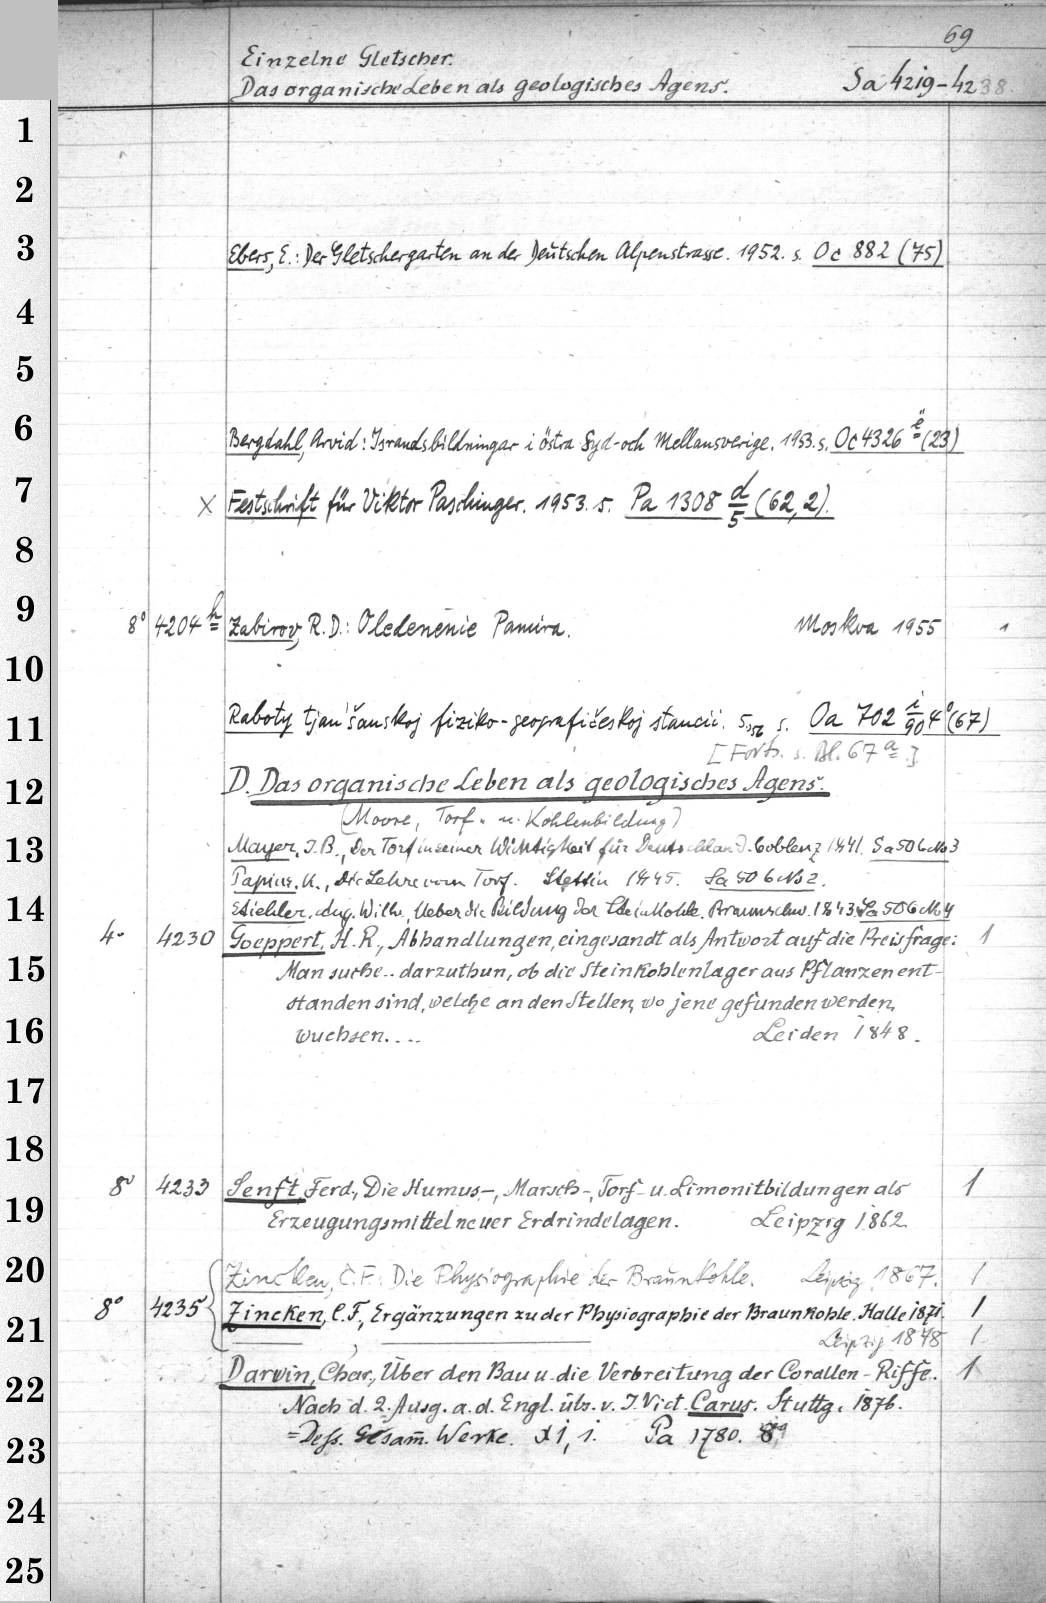 69
Einzelne Gletscher.
Das organische Leben als geologisches Agens. Sa 4219-4238.
1
2
3 Ebers, E.: Der Gletschergarten an der Deutschen Alpenstrasse. 1952. s. Oc 882 (75)
4
5
6 Bergdahl, Arvid: Israndsbildningar i östra Syd- och Mellansverige. 1953. s. Oc 4326 ë (23)
7 X Festschrift für Viktor Paschinger. 1953. s. Pa 1308 d/5 (62,2).
8
9 8° 4204 h Zabirov, R.D.: Oledenenie Pamira. Moskva 1955 1
10
11 Raboty tjan'šanskoj fiziko-geografičeskoj stancii. s. Oa 702 i/90 4° (67)
[Forts. s. Bl. 67 a.]
12 D. Das organische Leben als geologisches Agens.
(Moore, Torf- u. Kohlenbildung)
13 Mayer, J.B., Der Torf in seiner Wichtigkeit für Deutschland. Coblenz 1841. Sa 506 No 3
Papius, K., Die Lehre vom Torf. Stettin 1845. Sa 506 No 2.
14 Stiehler, Aug. Wilh., Ueber die Bildung der Steinkohle. Braunschw. 1843. Sa 506 No 4
4° 4230 Goeppert, H.R., Abhandlungen, eingesandt als Antwort auf die Preisfrage: 1
15 Man suche.. darzuthun, ob die Steinkohlenlager aus Pflanzen ent-
standen sind, welche an den Stellen, wo jene gefunden werden,
16 wuchsen.... Leiden 1848.
17
18
8° 4233 Senft, Ferd., Die Humus-, Marsch-, Torf- u. Limonitbildungen als 1
19 Erzeugungsmittel neuer Erdrindelagen. Leipzig 1862.
20 Zincken, C.F.: Die Physiographie der Braunkohle. Leipzig 1867. 1
8° 4235 Zincken, C.F., Ergänzungen zu der Physiographie der Braunkohle. Halle 1871. 1
21 Leipzig 1878 1
Darwin, Char., Über den Bau u. die Verbreitung der Corallen-Riffe. 1
22 Nach d. 2. Ausg. a. d. Engl. übs. v. J. Vict. Carus. Stuttg. 1876.
23 = Dess. Gesam̄. Werke. XI, 1. Pa 1780. 8°
24
25